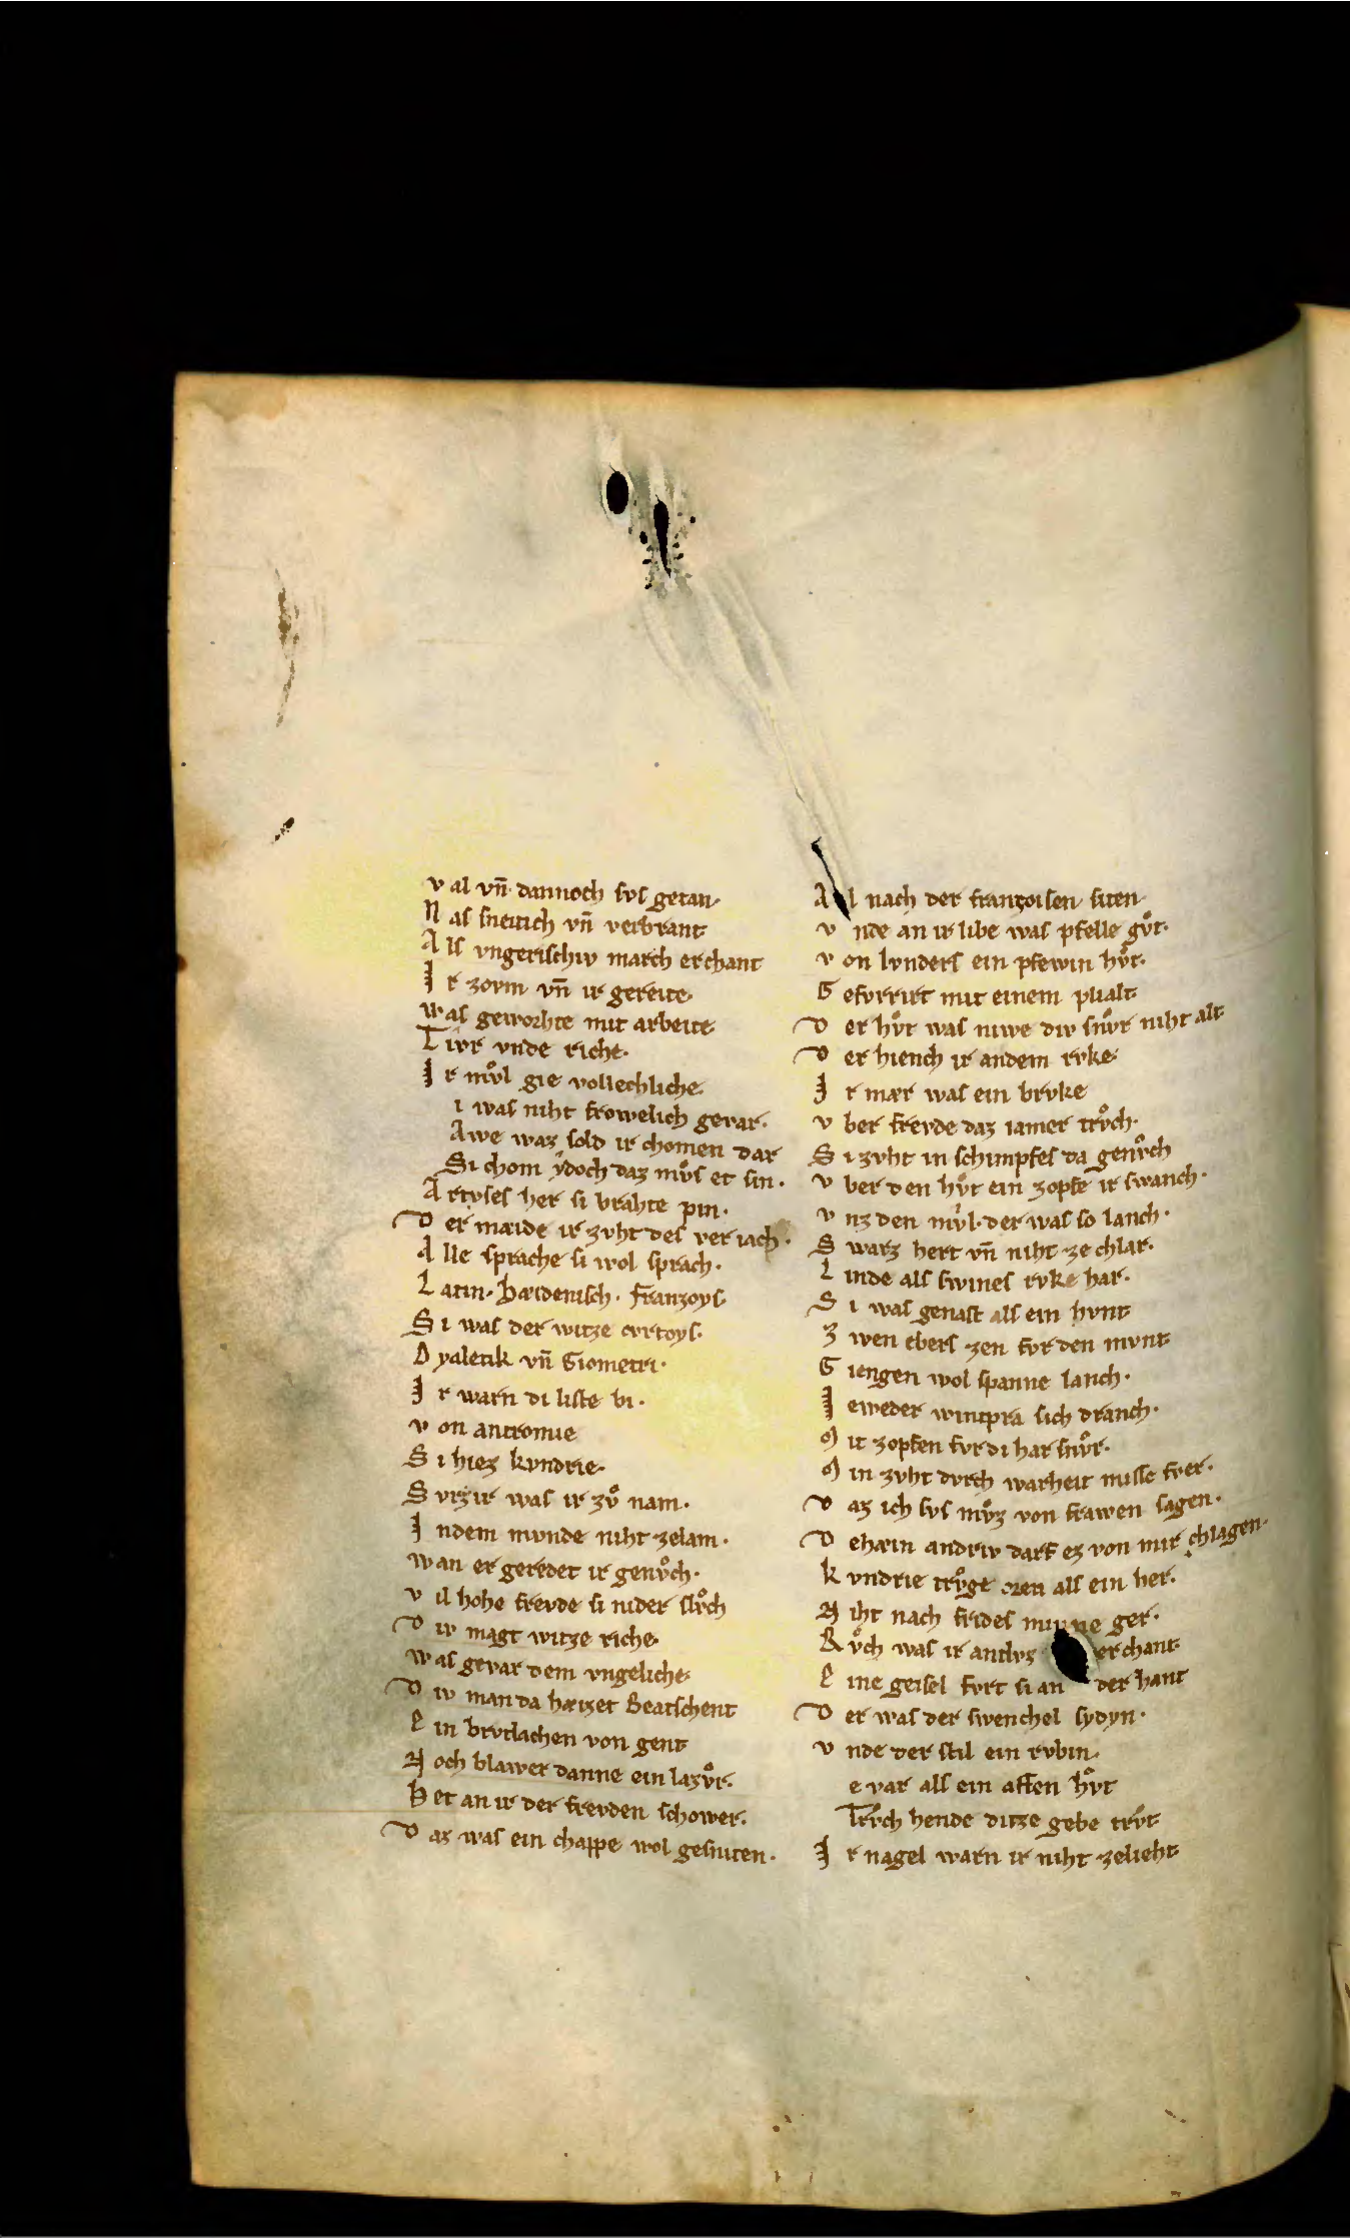 v al vn̄ dannoch svs getan·
N as sneitich vn̄ verbrant
A ls vngerischiv march erchant
I r zovm vn̄ ir gereite·
w as geworhte mit arbeite
T ivr vnde riche·
I r mvͦl gie vollechliche·
i was niht frowelich gevar·
Awe waz sold ir chomen dar
Si chom ydoch daz mvͦs et sin·
A rtvses her si brahte pin·
D er mæide ir zvht des veriach·
A lle sprache si wol sprach·
L atin· hæidenisch· franzoys·
S i was der witze cvrtoys·
D yaletik vn̄ Giometri·
I r warn di liste bi·
v on antromie
S i hiez kvndrie·
S vrzir was ir zvͦ nam·
I ndem mvnde niht zelam·
w an er geredet ir genvͦch·
v il hohe frevde si nider slvͦch
D iv magt witze riche·
w as gevar dem vngeliche·
D iv man da hæizet Beatschent
E in brvtlachen von gent
N och blawer danne ein lazvͦr·
H et an ir der frevden schower·
D az was ein chappe wol gesniten·
A l nach der françoisen siten·
v nde an ir libe was pfelle gvͦt·
v on lvnders ein pfewin hvͦt·
G efvrrirt mit einem plialt
D er hvͦt was niwe div snvͦr niht alt·
D er hiench ir andem rvke·
I r mær was ein brvke
v ber frevde daz iamer trvͦch·
S i zvht in schimpfes da genvͦch
v ber den hvͦt ein zopfe ir swanch·
v nz den mvͦl· der was so lanch·
S warz hert vn̄ niht ze chlar·
L inde als swines rvke har·
S i was genast als ein hvnt
Z wen ebers zen fvr den mvnt
G iengen wol spanne lanch·
I eweder wintpra sich dranch·
M it zopfen fvr di har snvͦr·
M in zvht dvrch warheit misse fver·
D az ich svs mvͦz von frawen sagen·
D ehæin andriv darf ez von mir chlagen·
k vndrie trvͦge oren als ein ber·
N iht nach frides minne ger·
R vͦch was ir antlvz erchant
E ine geisel fvrt si an der hant
D er was der swenchel sydyn·
v nde der stil ein rvbin·
e var als ein affen hvͦt
Trvch hende ditze gebe trvͦt
I r nagel warn ir niht zelieht